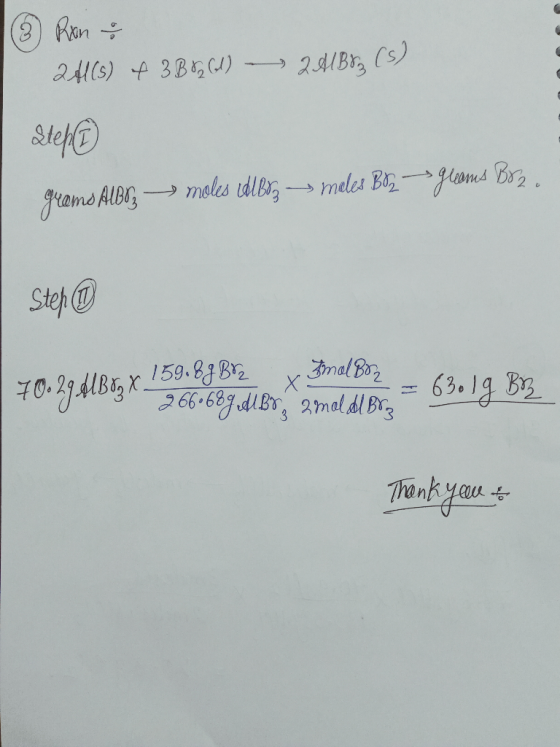 ③ Rxn ÷
2Al(s) + 3Br₂(l) ⟶ 2AlBr₃ (s)
Step Ⓘ
grams AlBr₃ ⟶ moles AlBr₃ ⟶ moles Br₂ ⟶ grams Br₂.
Step Ⓘⓘ
70.2g AlBr₃ × 159.8g Br₂ / 266.68g AlBr₃ × 3mol Br₂ / 2mol AlBr₃ = 63.1g Br₂
Thank you ÷